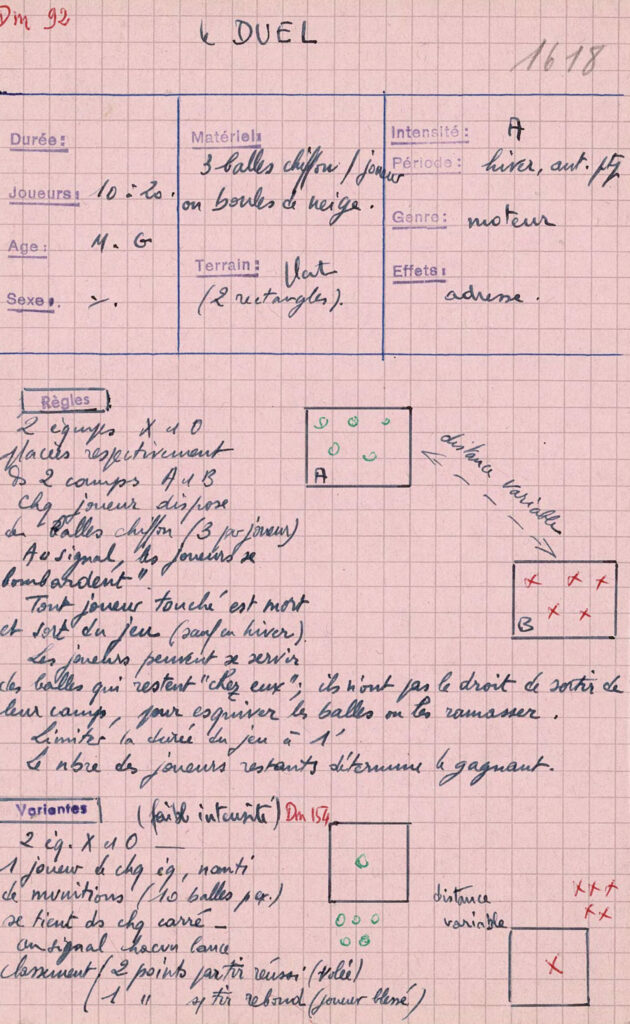 Dm 92
DUEL
1618
Durée:
Joueurs: 10 à 20.
Age: M. G
Sexe:
Matériel:
3 balles chiffon / joueur
ou boules de neige.
Terrain: plat
(2 rectangles).
Intensité: A
Période: hiver, aut.
Genre: moteur
Effets:
adresse.
Règles
2 équipes X et O
placées respectivement
ds 2 camps A et B
Chq joueur dispose
de balles chiffon (3 par joueur)
Au signal, les joueurs se
bombardent"
Tout joueur touché est mort
et sort du jeu (sauf en hiver).
Les joueurs peuvent se servir
des balles qui restent "chez eux"; ils n'ont pas le droit de sortir de
leur camp, pour esquiver les balles ou les ramasser.
Limiter la durée du jeu à 1'
Le nbre des joueurs restants détermine le gagnant.
A
distance variable
B
Variantes (faible intensité) Dm 154
2 éq. X et O —
1 joueur de chq éq, nanti
de munitions (10 balles p. ex.)
se tient ds chq carré —
au signal chacun lance
classement / 2 points par tir réussi (volée)
( 1 " " tir rebond (joueur blessé)
distance
variable